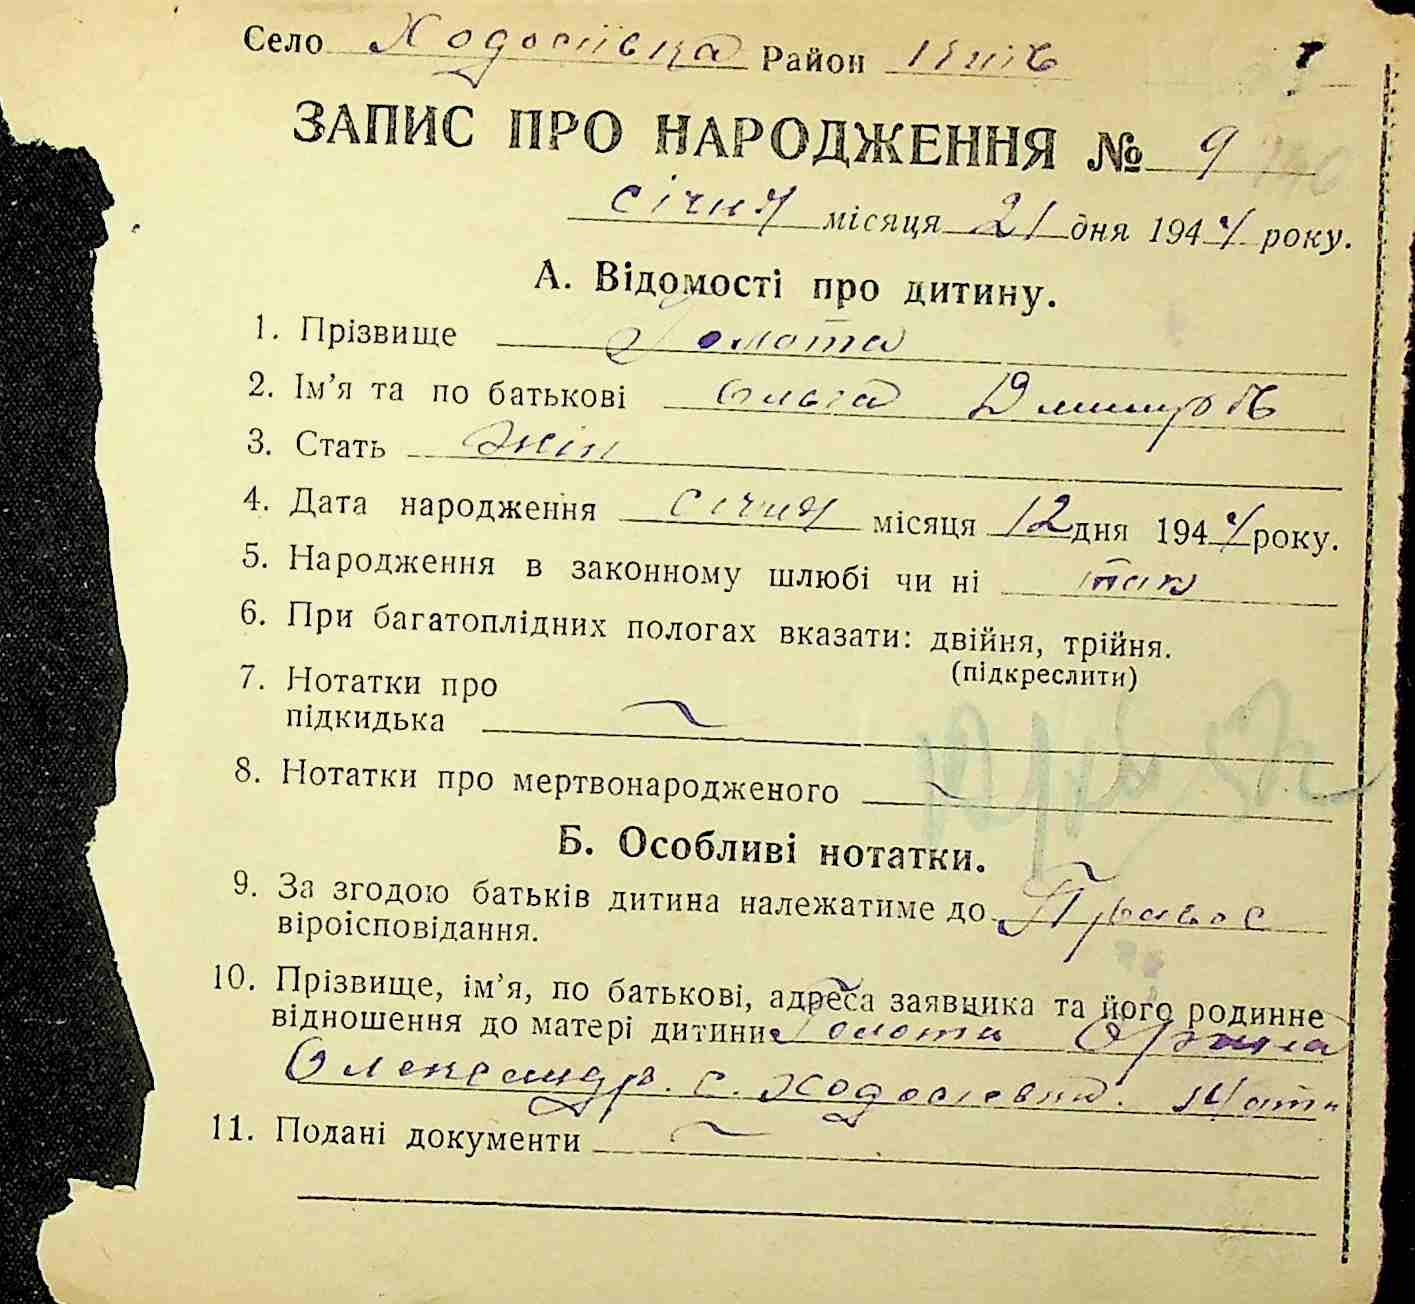 Село Ходосівка Район Київ
ЗАПИС ПРО НАРОДЖЕННЯ № 9
січня місяця 21 дня 1944 року.
А. Відомості про дитину.
1. Прізвище Голота
2. Ім'я та по батькові Ольга Дмитров
3. Стать жін
4. Дата народження січня місяця 12 дня 1944 року.
5. Народження в законному шлюбі чи ні так
6. При багатоплідних пологах вказати: двійня, трійня.
(підкреслити)
7. Нотатки про
підкидька
8. Нотатки про мертвонародженого
Б. Особливі нотатки.
9. За згодою батьків дитина належатиме до Правос
віроісповідання.
10. Прізвище, ім'я, по батькові, адреса заявника та його родинне
відношення до матері дитини Голота
Олександр. с. Ходосівка. Мати
11. Подані документи